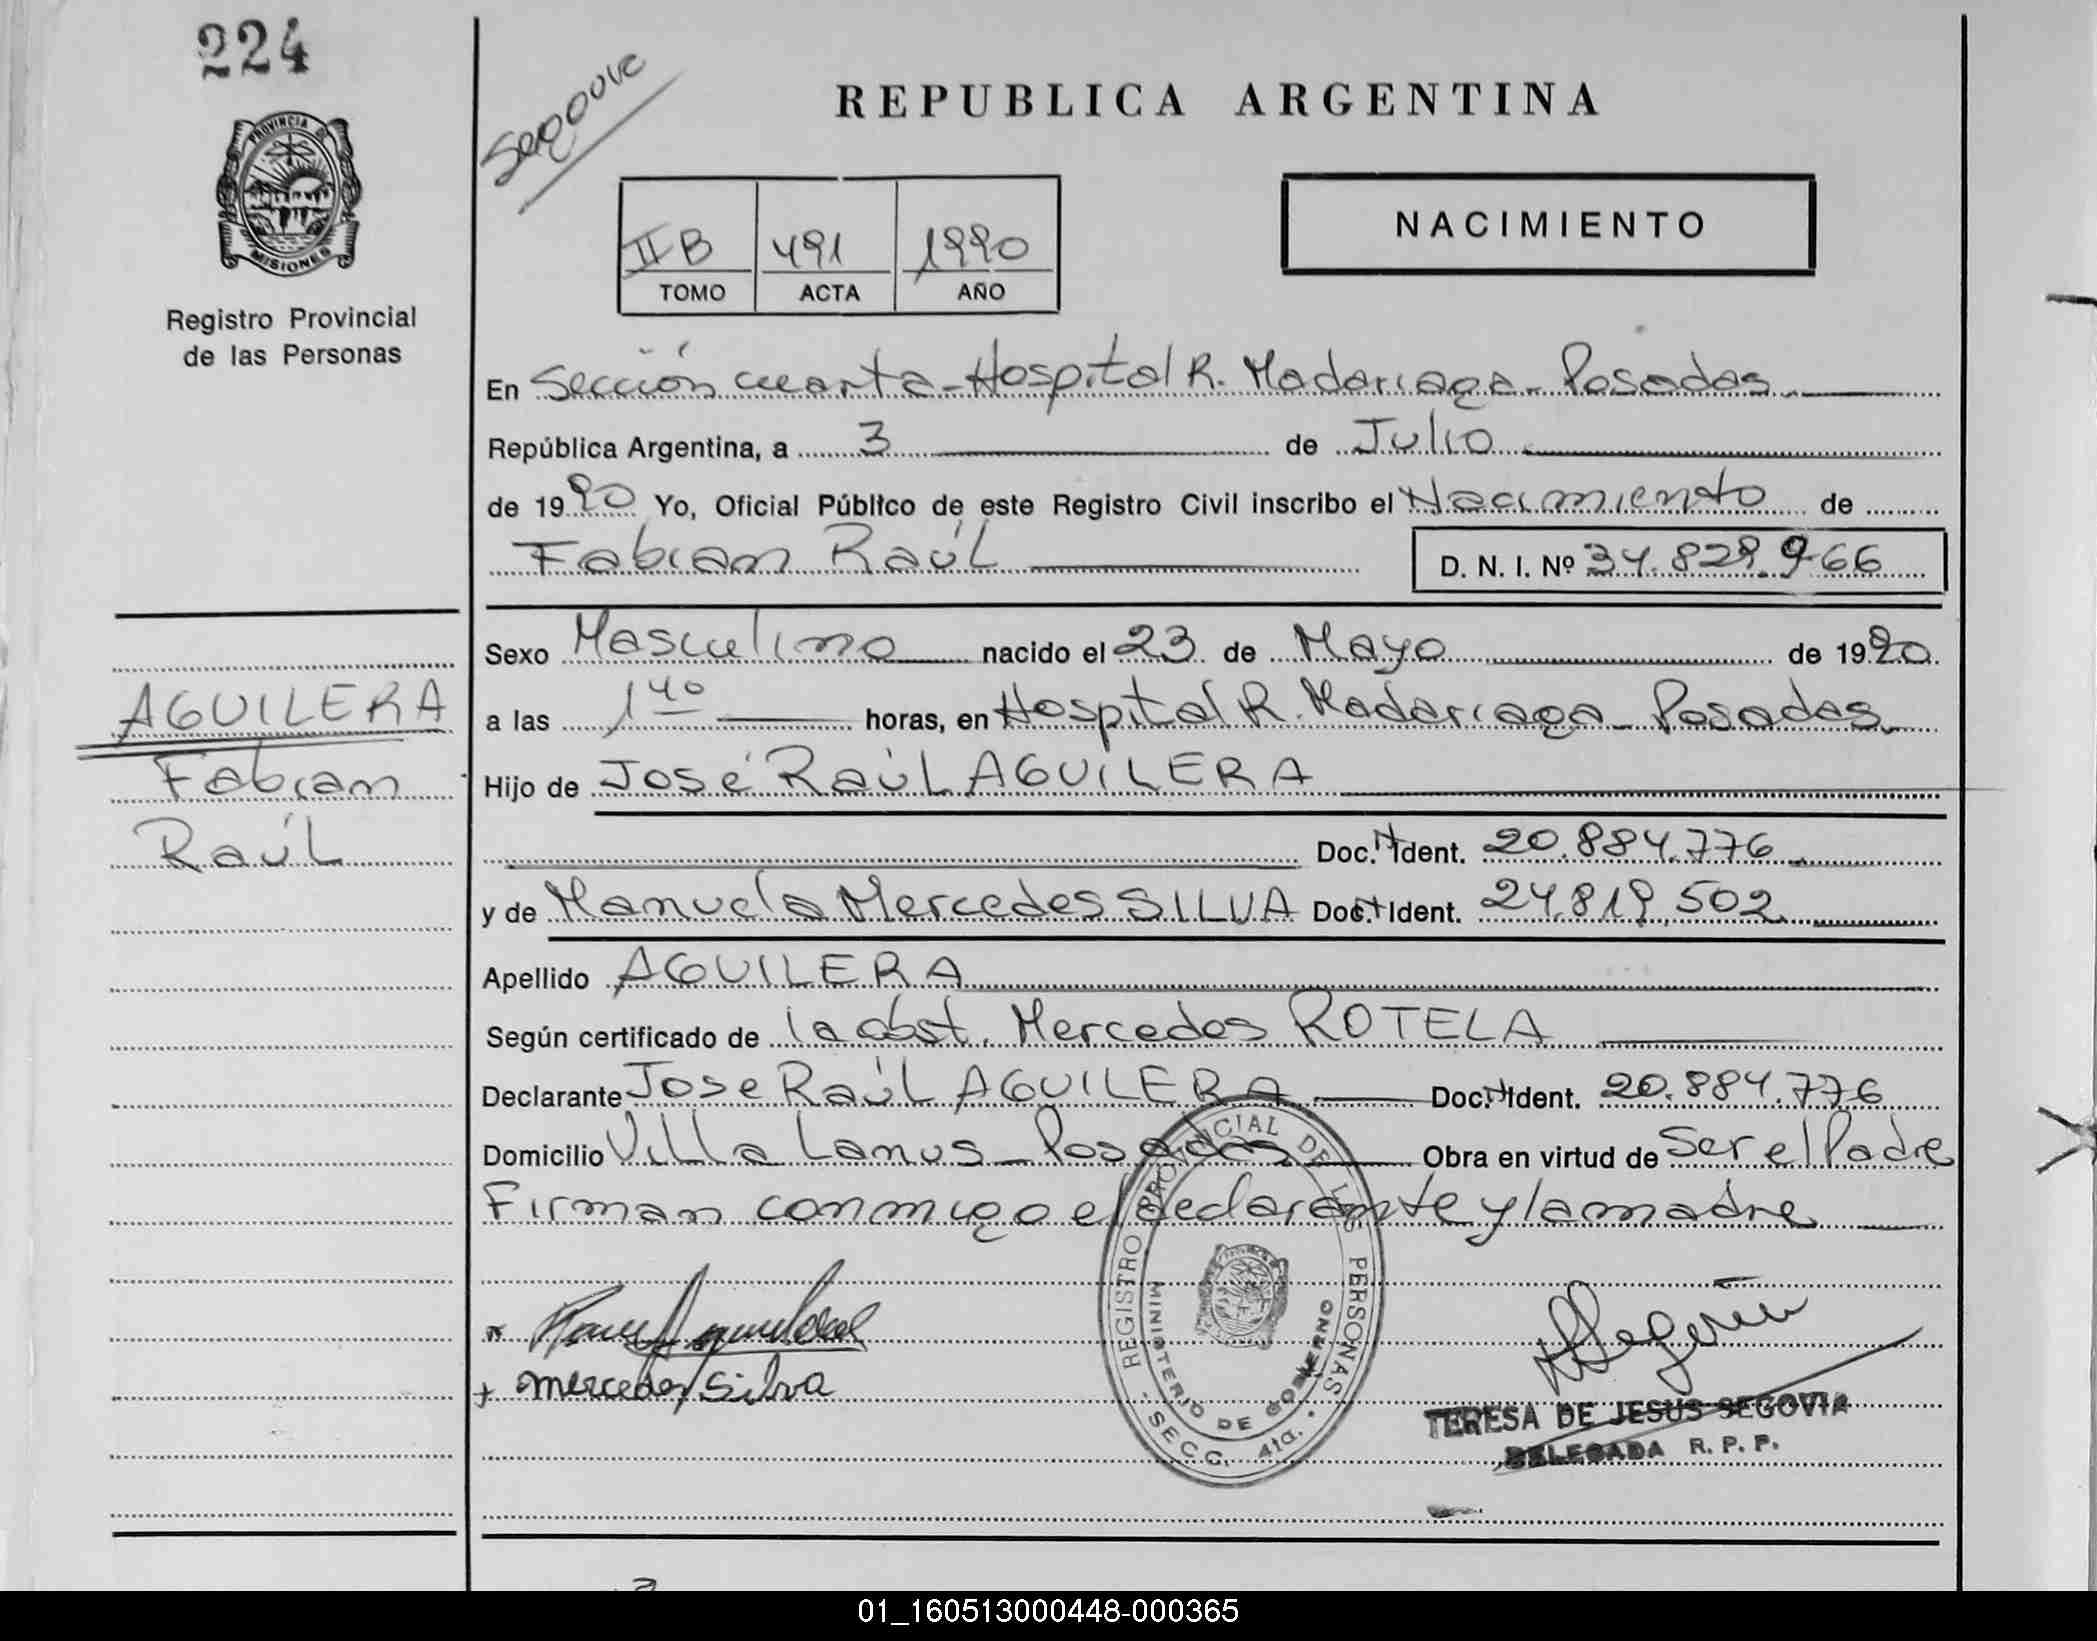 224
Segovia
REPUBLICA ARGENTINA
PROVINCIA DE
MISIONES
Registro Provincial
de las Personas
II B 491 1990
TOMO ACTA AÑO
NACIMIENTO
En Sección cuarta-Hospital R. Madariaga-Posadas
República Argentina, a 3 de Julio
de 1990 Yo, Oficial Público de este Registro Civil inscribo el Nacimiento de
Fabian Raúl D. N. I. Nº 34.829.966
Sexo Masculino nacido el 23 de Mayo de 1990
AGUILERA
Fabian
Raúl
a las 1⁴⁰ horas, en Hospital R. Madariaga-Posadas
Hijo de José Raúl AGUILERA
Doc. Ident. 20.884.776
y de Manuela Mercedes SILVA Doc. Ident. 24.819.502
Apellido AGUILERA
Según certificado de la obst. Mercedes ROTELA
Declarante Jose Raúl AGUILERA Doc. Ident. 20.884.776
Domicilio Villa Lanus-Posadas Obra en virtud de Ser el Padre
Firman conmigo el declarante y la madre
Mercedes Silva
REGISTRO PROVINCIAL DE LAS PERSONAS
MINISTERIO DE GOBIERNO
SECC. 4ta.
TERESA DE JESUS SEGOVIA
DELEGADA R. P. P.
01_160513000448-000365